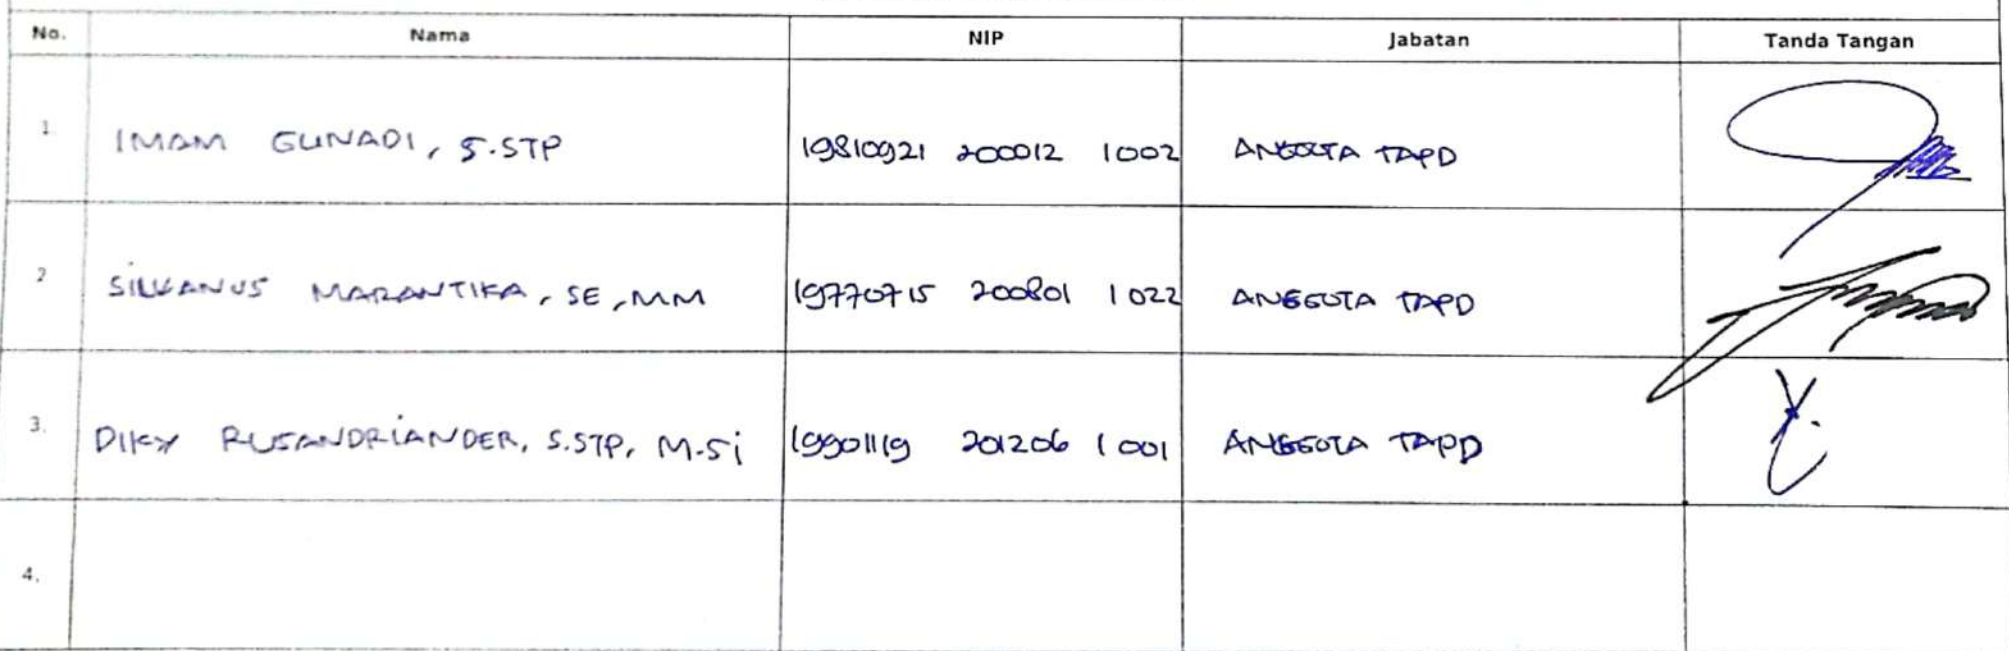 No. Nama NIP Jabatan Tanda Tangan
1. IMAM GUNADI, S.STP 19810921 200012 1002 ANGGOTA TAPD
2 SILVANUS MARANTIKA, SE, MM 19770715 200801 1022 ANGGOTA TAPD
3. DIKY RUSANDRIANDER, S.STP, M.Si 19901119 201206 1001 ANGGOTA TAPD
4.